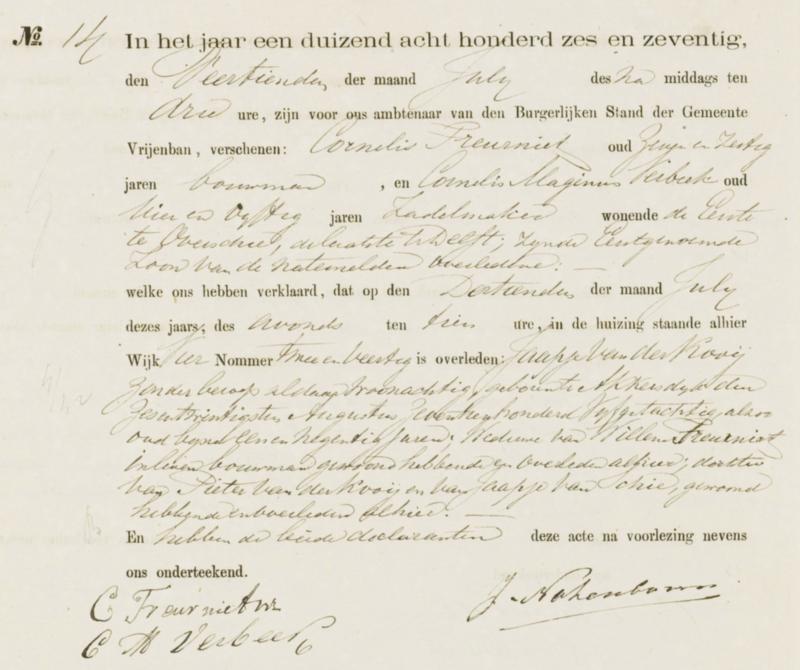 No. 14 In het jaar een duizend acht honderd zes en zeventig,
den Veertienden der maand July des na middags ten
drie ure, zijn voor ons ambtenaar van den Burgerlijken Stand der Gemeente
Vrijenban, verschenen: Cornelis Treurniet oud en Zestig
jaren bouwman , en Cornelis Maginus Verbeek oud
Vier en Vyftig jaren Zadelmaker wonende de Eerste
te Overschie, de laatste te Delft; zynde Eerstgenoemde
Zoon van de natemelden overledene: —
welke ons hebben verklaard, dat op den Dertienden der maand July
dezes jaars, des avonds ten tien ure, in de huizing staande alhier
Wijk Vier Nommer Twee en Veertig is overleden: Jaapje van der Kooij
zonder beroep aldaar woonachtig, geboren te Akkersdyk den
Zesentwintigsten Augustus Zeventienhonderd Vyf en tachtig alzoo
oud byna Een en Negentig Jaren; Weduwe van Willem Treurniet
in leven bouwman gewoond hebbende en overleden alhier; dochter
van Pieter van der Kooij en van Jaapje van Schie, gewoond
hebbende en overleden alhier. —
En hebben de beide declaranten deze acte na voorlezing nevens
ons onderteekend.
C Treurniet Wz J. Notenboom
C M Verbeek